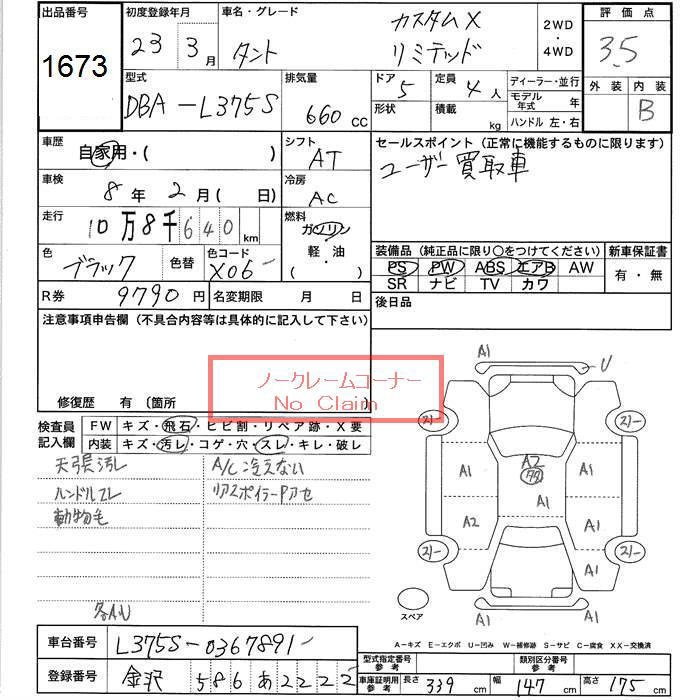 出品番号 初度登録年月 車名・グレード 評価点
1673 23 3月 タント カスタムX リミテッド 2WD・4WD 3.5
外装 内装
B
型式 排気量 ドア 定員 ディーラー・並行
DBA-L375S 660cc 5 4人 モデル年式 年
形状 積載 kg ハンドル 左・右
車歴 自家用・( ) シフト AT
セールスポイント(正常に機能するものに限ります)
ユーザー買取車
車検 8年2月( 日) 冷房 AC
走行 10万8千640km 燃料 ガソリン・軽油・( )
色 ブラック 色替 色コード X06
装備品(純正品に限り○をつけてください) 新車保証書
PS PW ABS エアB AW 有・無
SR ナビ TV カワ
R券 9790円 名変期限 月 日
後日品
注意事項申告欄(不具合内容等は具体的に記入して下さい)
ノークレームコーナー
No Claim
修復歴 有(箇所
検査員記入欄 FW キズ・飛石・ヒビ割・リペア跡・X要
内装 キズ・汚レ・コゲ・穴・スレ・キレ・破レ
天張汚レ A/C冷えない
ハンドルスレ リアスポイラーPアセ
動物毛
各A.U
A1 U
21- 21-
A1 A2 77 A1
A2 A1 A1
21- 21-
A1 A1
スペア
A1
A-キズ E-エクボ U-凹み W-補修跡 S-サビ C-腐食 XX-交換済
車台番号 L375S-0367891
型式指定番号 参考 類別区分番号 参考
登録番号 金沢 586 あ 2222
車庫証明用 参考 長さ 339cm 幅 147cm 高さ 175cm